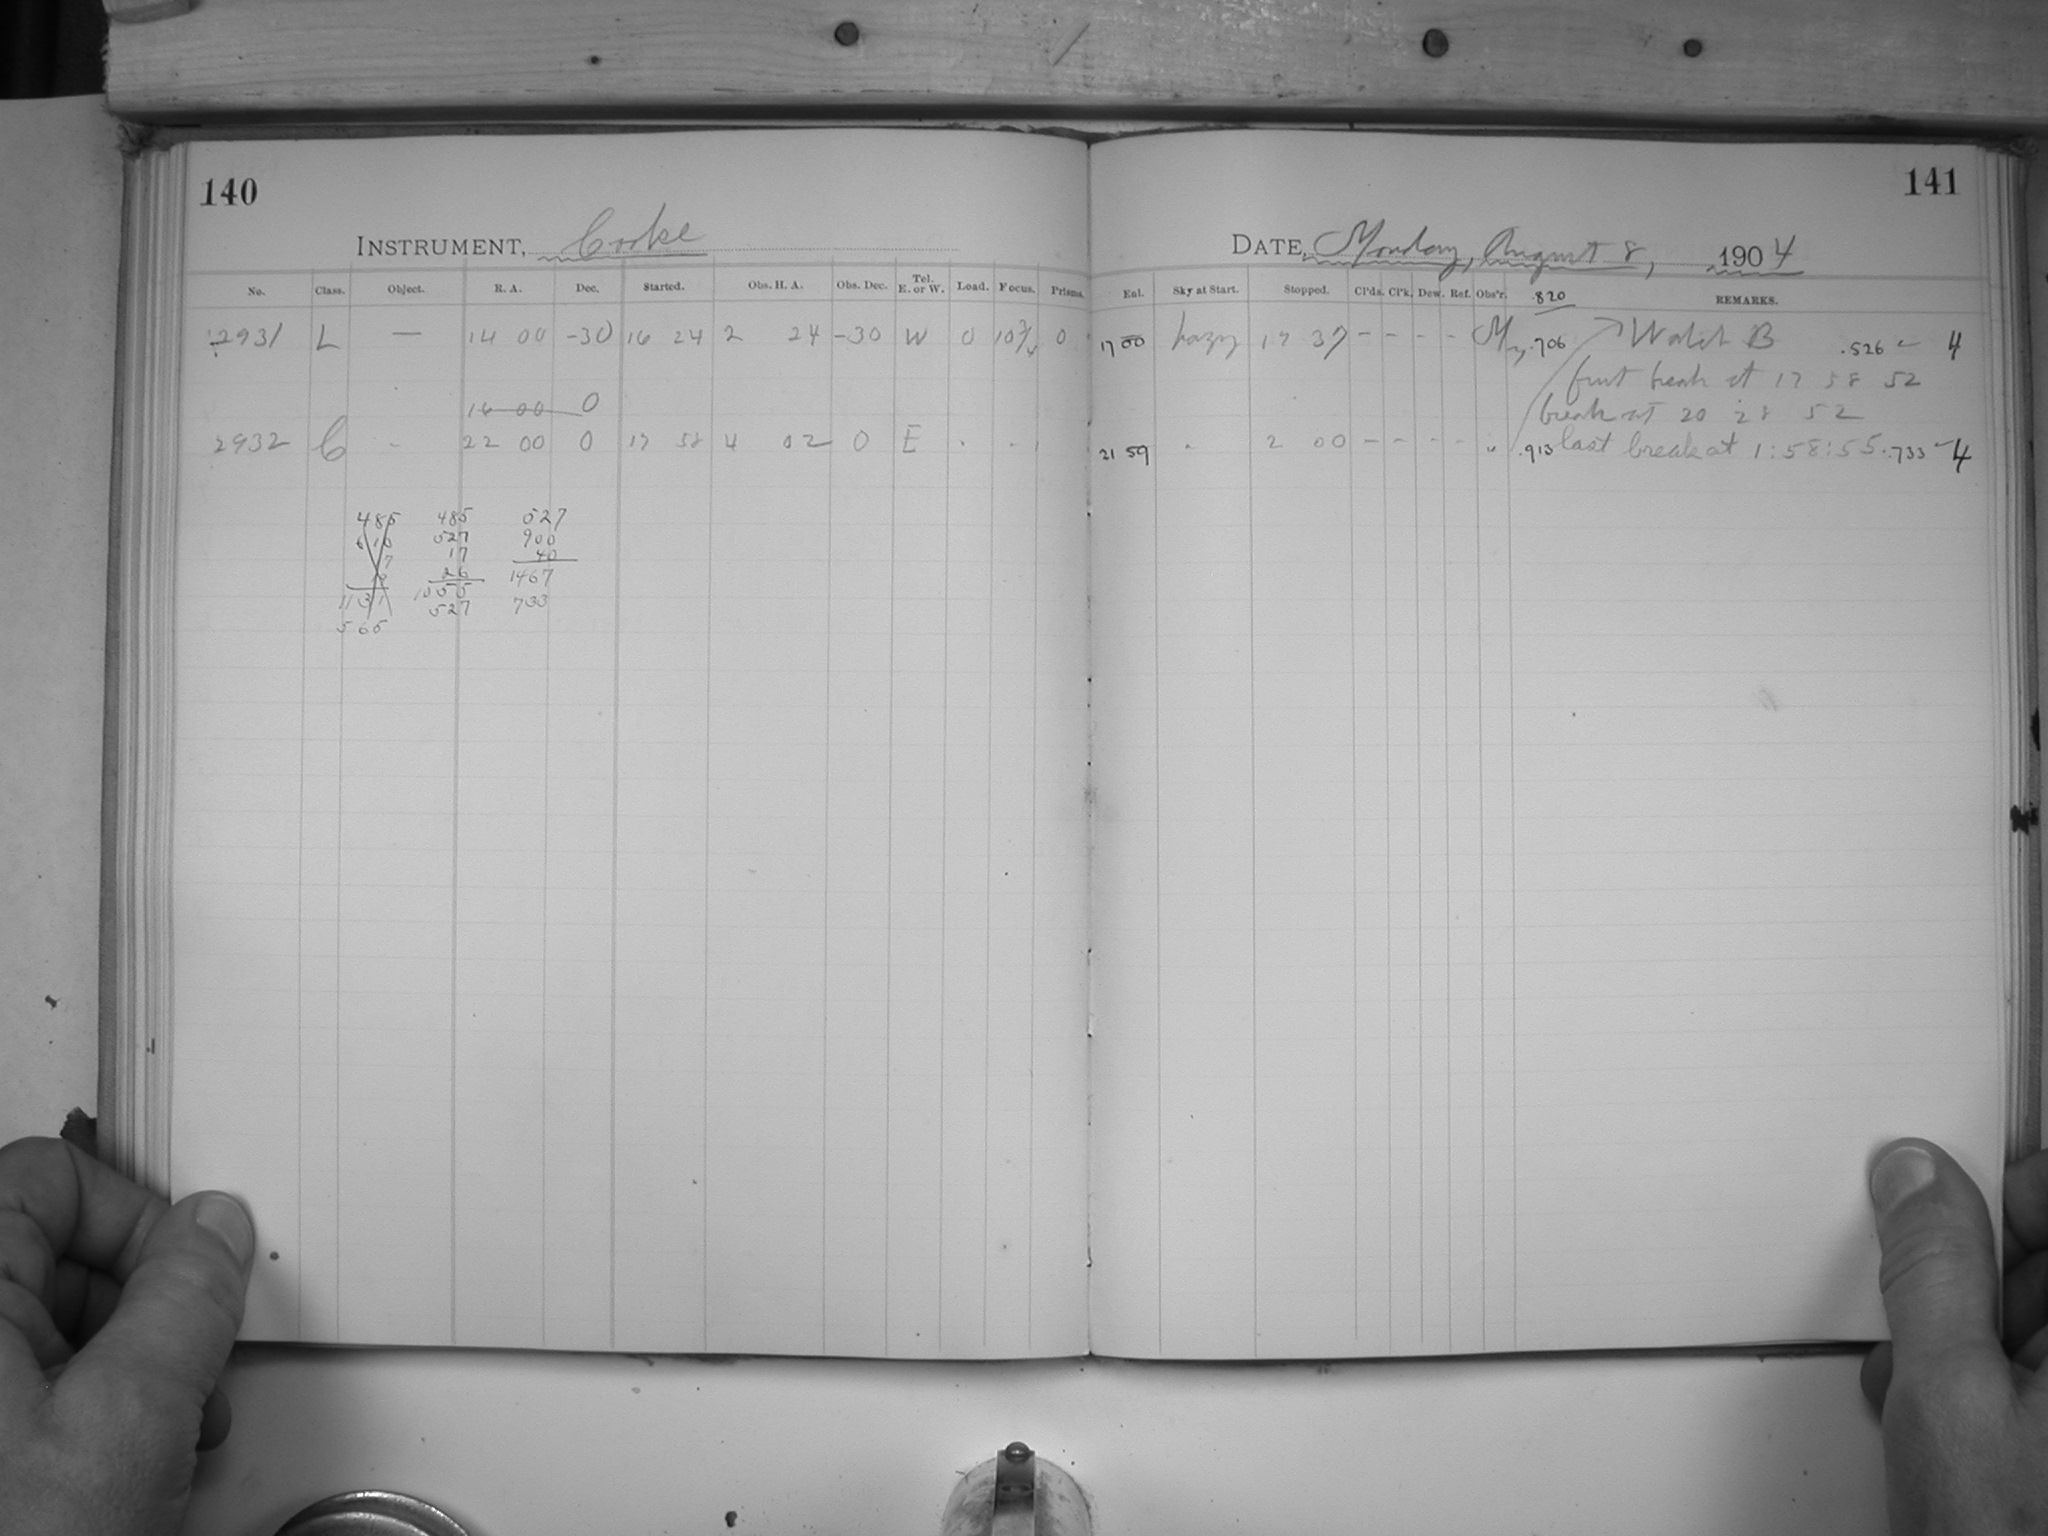 140
INSTRUMENT, Cooke
No. Class. Object. R. A. Dec. Started. Obs. H. A. Obs. Dec. Tel. E. or W. Load. Focus. Prisms.
2931 L — 14 00 -30 16 24 2 24 -30 W 0 10 3/4 0
16 00 0
2932 C - 22 00 0 17 58 4 02 0 E . . .
485 485 527
610 527 900
7 17 40
26 1467
1131 1055 733
565 527
141
DATE, Monday, August 8, 1904
Enl. Sky at Start. Stopped. Cl'ds. Cl'k. Dew. Ref. Obs'r. .820 REMARKS.
17 00 hazy 17 37 - - - - M .706 Watch B .526 - 4
first break at 17 58 52
break at 20 28 52
21 59 " 2 00 - - - - " .913 last break at 1:58:55 .733 - 4